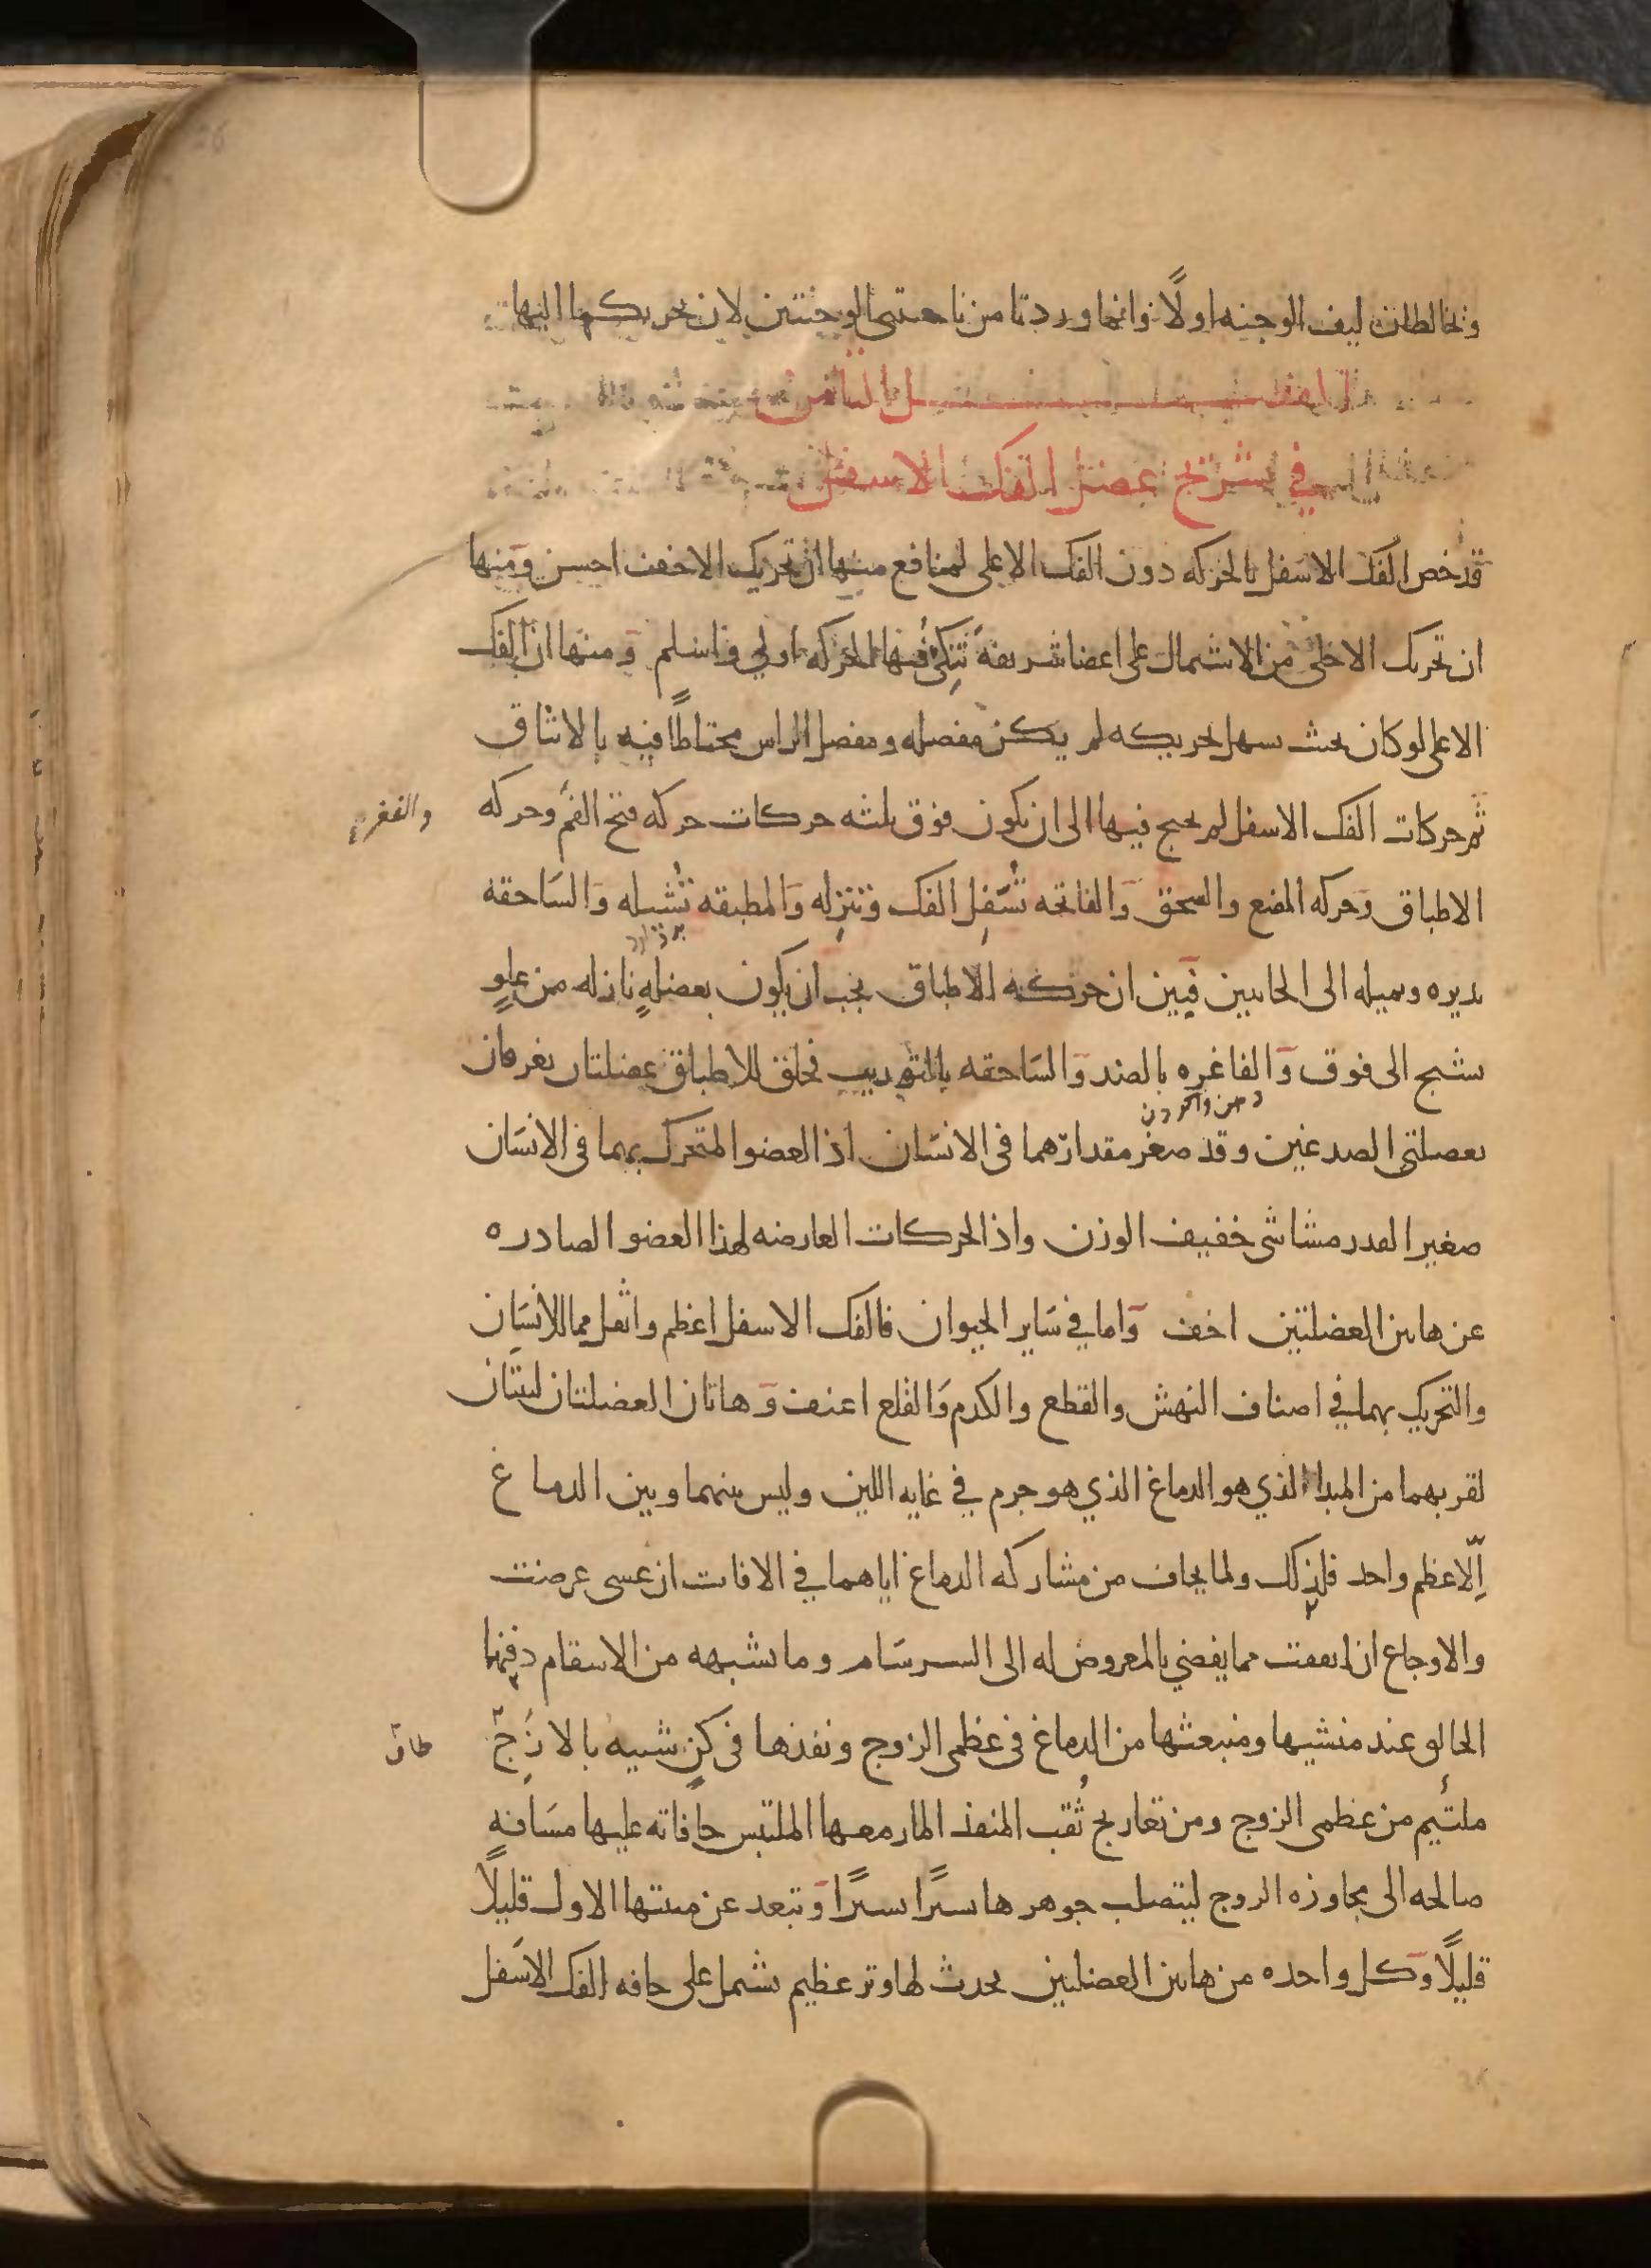 وتخالطان ليف الوجنه اولًا وانما وردتا من ناحيتى الوجنتين لان تحريكهما اليها
الفصل الثامن
في تشريح عضل الفك الاسفل
قد خص الفك الاسفل بالحركه دون الفك الاعلى لمنافع منها ان تحريك الاخف احسن ومنها
ان تحريك الاخلى من الاشتمال على اعضا شريفة تنكى فيها الحركه اولي واسلم ومنها ان الفك
الاعلى لوكان بحيث سهل تحريكه لم يكن مفصله ومفصل الراس محتاطًا فيه بالاىثاق
ثم حركات الفك الاسفل لم يحتج فيها الى ان تكون فوق ثلثه حركات حركه فتح الفم وحركه
والفغر
الاطباق وحركه المضغ والسحق والفاتحه تُسَفِّل الفك وتنزله والمطبقه تُشيله والسَاحقه
تديره وتميله الى الجانبين فبين ان حركه الاطباق يجب ان يكون بعضلٍ نازله من علوٍ
يتشنج الى فوق والفاغره بالضد والسَاحقه بالتوريب فخلق للاطباق عضلتان يعرفان
دهن واكردن
بعضلتي الصدغين وقد صغر مقدارهما فى الانسَان اذ العضو المتحرك بهما فى الانسَان
صغير القدر مشاشي خفيف الوزن واذ الحركات العارضه لهذا العضو الصادره
عن هاتين العضلتين اخف وَاما في سَاير الحيوان فالفك الاسفل اعظم واثقل مما للانسَان
والتحريك بهما في اصناف النهش والقطع والكدم وَالقلع اعنف وَهاتان العضلتان لينتان
لقربهما من المبدا الذي هو الدماغ الذي هو جرم في غايه اللين وليس بينهما وبين الدماغ
اِلّا عظم واحد فلذلك ولما يخاف من مشاركه الدماغ اياهما في الافات ان عسى عرضت
والاوجاع ان اتفقت مما يفضي بالمعروض له الى السرسَام وما يشبهه من الاسقام دفنها
الخالق عند منشيها ومنبعثها من الدماغ فى عظمى الزوج ونفذها فى كنٍ شبيه بالازج
طاق
ملتئيم من عظمى الزوج ومن تعاريج ثُقب المنفذ المار معها الملتبس حافاته عليها مسَافهٍ
صالحه الى مجاوزه الزوج ليتصلب جوهرها يسيرًا يسيرًا وَتبعد عن منبتها الاول قليلًا
قليلًا وَكل واحده من هاتين العضلتين يحدث لها وتر عظيم يشتمل على حافه الفك الاسَفل